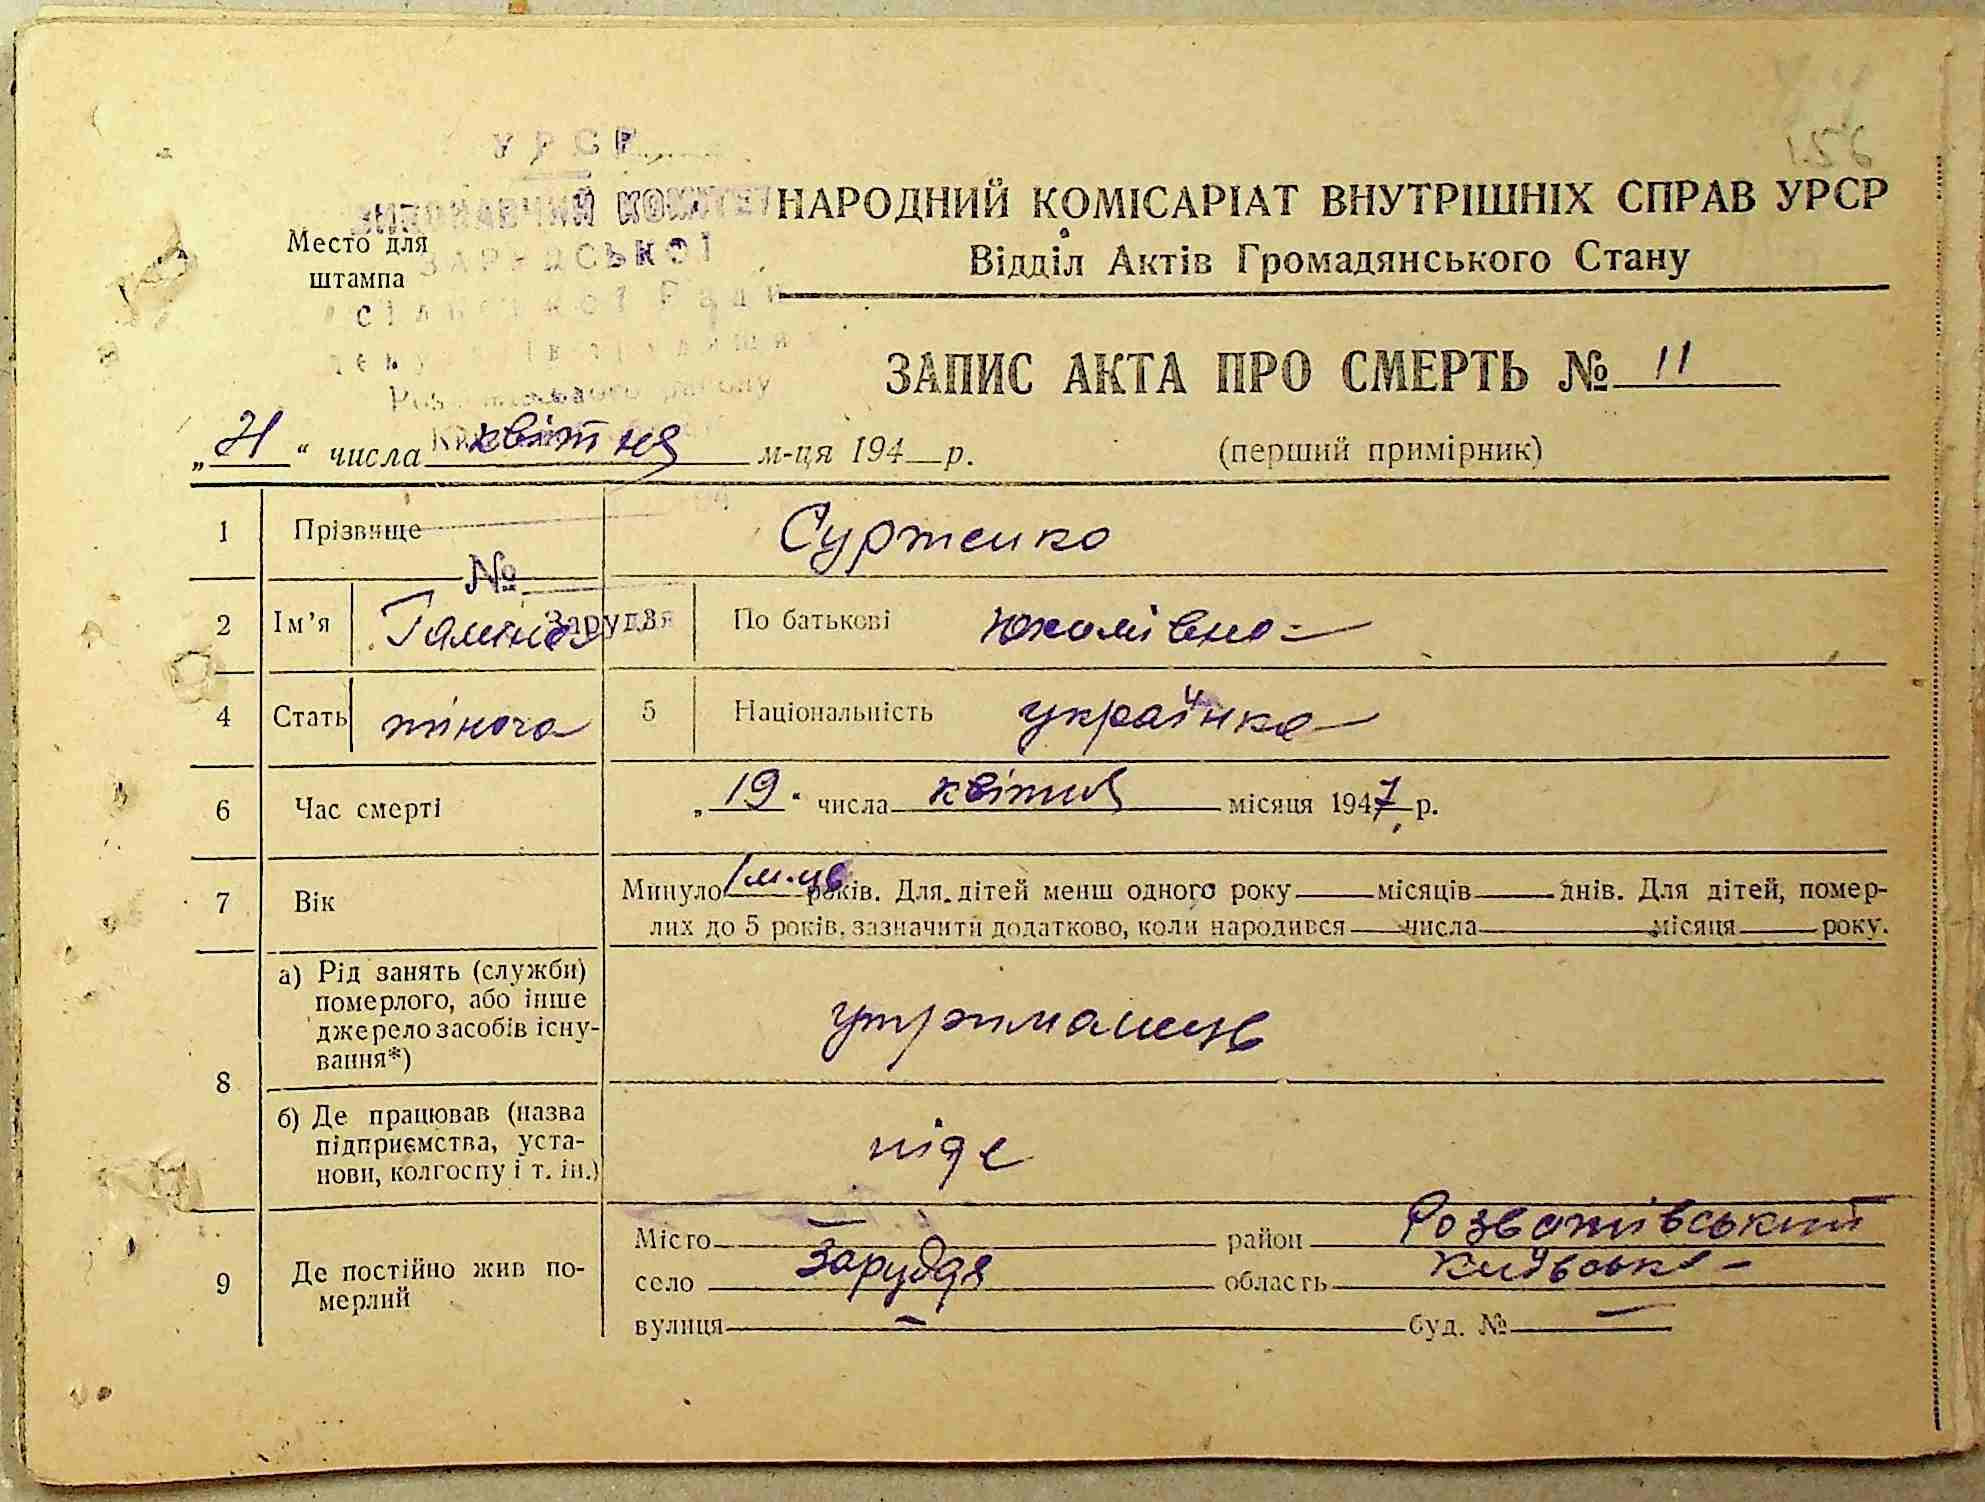 УРСР
ВИКОНАВЧИЙ КОМІТЕТ
ЗАРУДСЬКОЇ
сільської Ради
району
Место для
штампа
НАРОДНИЙ КОМІСАРІАТ ВНУТРІШНІХ СПРАВ УРСР
Відділ Актів Громадянського Стану
ЗАПИС АКТА ПРО СМЕРТЬ № 11
„21“ числа квітня м-ця 194 р. (перший примірник)
1 Прізвище Сурженко
№
Зарудзя
2 Ім'я Галина 3 По батькові Юхимівна
4 Стать жіноча 5 Національність українка
6 Час смерті „19“ числа квітня місяця 1947 р.
7 Вік Минуло 1 м-ць років. Для дітей менш одного року місяців днів. Для дітей, помер-
лих до 5 років, зазначити додатково, коли народився числа місяця року.
8 а) Рід занять (служби)
померлого, або інше
джерело засобів існу-
вання*)
утриманець
б) Де працював (назва
підприємства, уста-
нови, колгоспу і т. ін.)
ніде
9 Де постійно жив по-
мерлий
Місто — район Розважівський
село Заруддя область Київська
вулиця — буд. № —